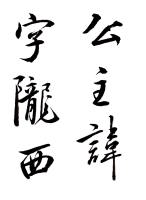 公主諱
字隴西